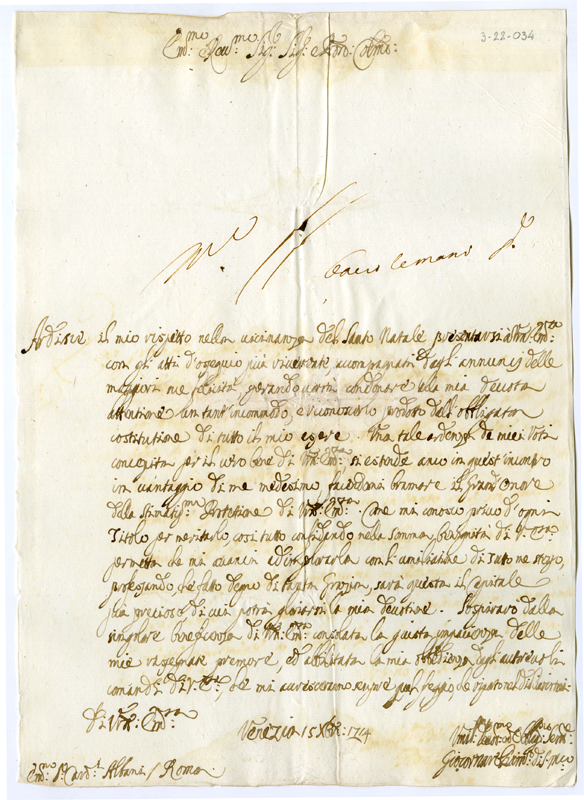 3-22-034
Em:mo Rev:mo Sig: Sig: e Pron: Colmo:
bacio le mani
Ardisce il mio rispetto nella vicinanza del Santo Natale presentarsi a Vra: Emza:
con gli atti d'ossequio più riverente accompagnati dagli annuncij delle
maggiori felicità, sperando
attentione un tant'incomodo, e riconoscerlo prodoto dell'obbligata
costitutione di tutto il mio essere. Una tale ardenza de miei Voti
concepita per il vero bene di Vra: Emza: si estende anco in quest'incontro
in vantaggio di me medesimo facendomi bramare il grand'onore
della Stimatissma Protetione di Vra: Emza: Che mi conosco privo d'ogni
Titolo per meritarlo così tutto confidando nella somma benignità di V: Emza:
permetta che mi avanzi ad implorarla con l'umiliatione di tutto me stesso,
protestando, che fatto degno di tanta Grazia, sarà questa il Capitale
più precioso di cui potrà gloriarsi la mia devotione. Sospiravo dalla
singolare beneficenza di Vra: Emza: consolata la giusta impazienza delle
mie rassegnate premure, ed abilitata la mia obbedienza degl'autorevoli
comandi di V: Emza:, che mi accresceranno sempre più
di Vra: Emza:
Venezia 15 Xbre: 1714
Em:mo Sr Card:l Albani / Roma